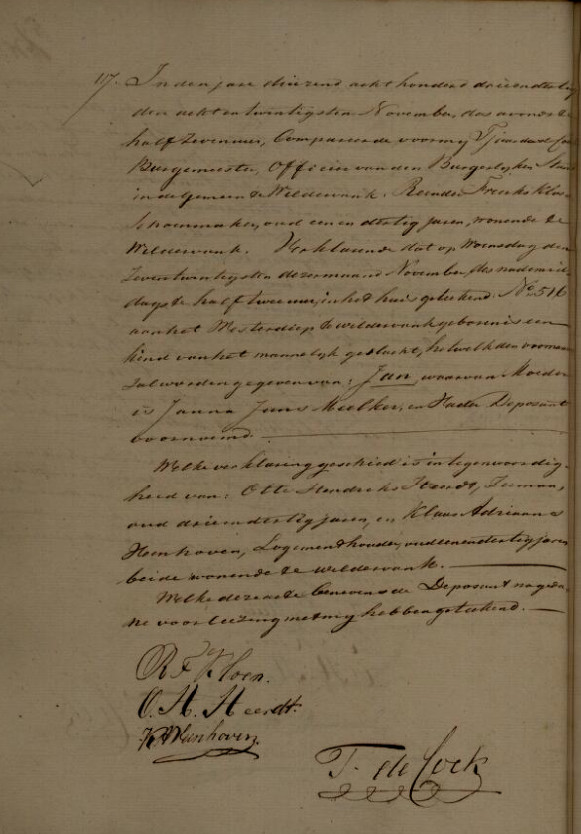 117. In den jare duizend acht honderd drieendertig
den acht en twintigsten November, des avonds te
half Zeven uur, Compareerde voor my Tjaard de Cock
Burgemeester, Officier van den Burgerlyken Stand
in de Gemeente Wildervank. Reender Freerks Kloen
Schoenmaker, oud een en dertig jaren, wonende te
Wildervank. Verklarende dat op Woensdag den
Zeven twintigsten dezer maand November, des namid-
dags te half twee uur, in het huis geteekend. No. 516
aan het Westerdiep te Wildervank geboren is een
kind van het mannelyk geslacht, hetwelk den voornaam
zal worden gegeven van: Jan, waarvan Moeder
is Janna Jans Meelker, en Vader Deposant
voornoemd.
Welke verklaring geschied is in tegenwoordig-
heid van: Otto Hendriks Heerdt,
oud drie en dertig jaren, en Klaas Adriaans
Hoenhoven, Logementhouder, oud een en dertig jaren
beide wonende te Wildervank.
Welke deze acte benevens de Deposant na geda-
ne voorleezing met my hebben geteekend.
R F Kloen.
O. H. Heerdt.
T. de Cock